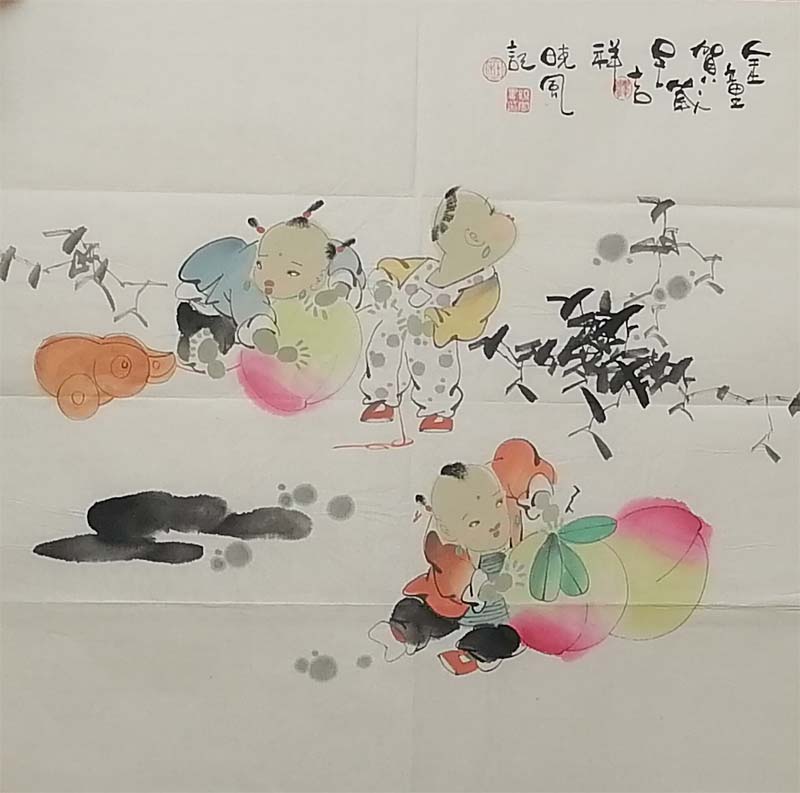 金童
賀歲
呈吉
祥
晓风
記